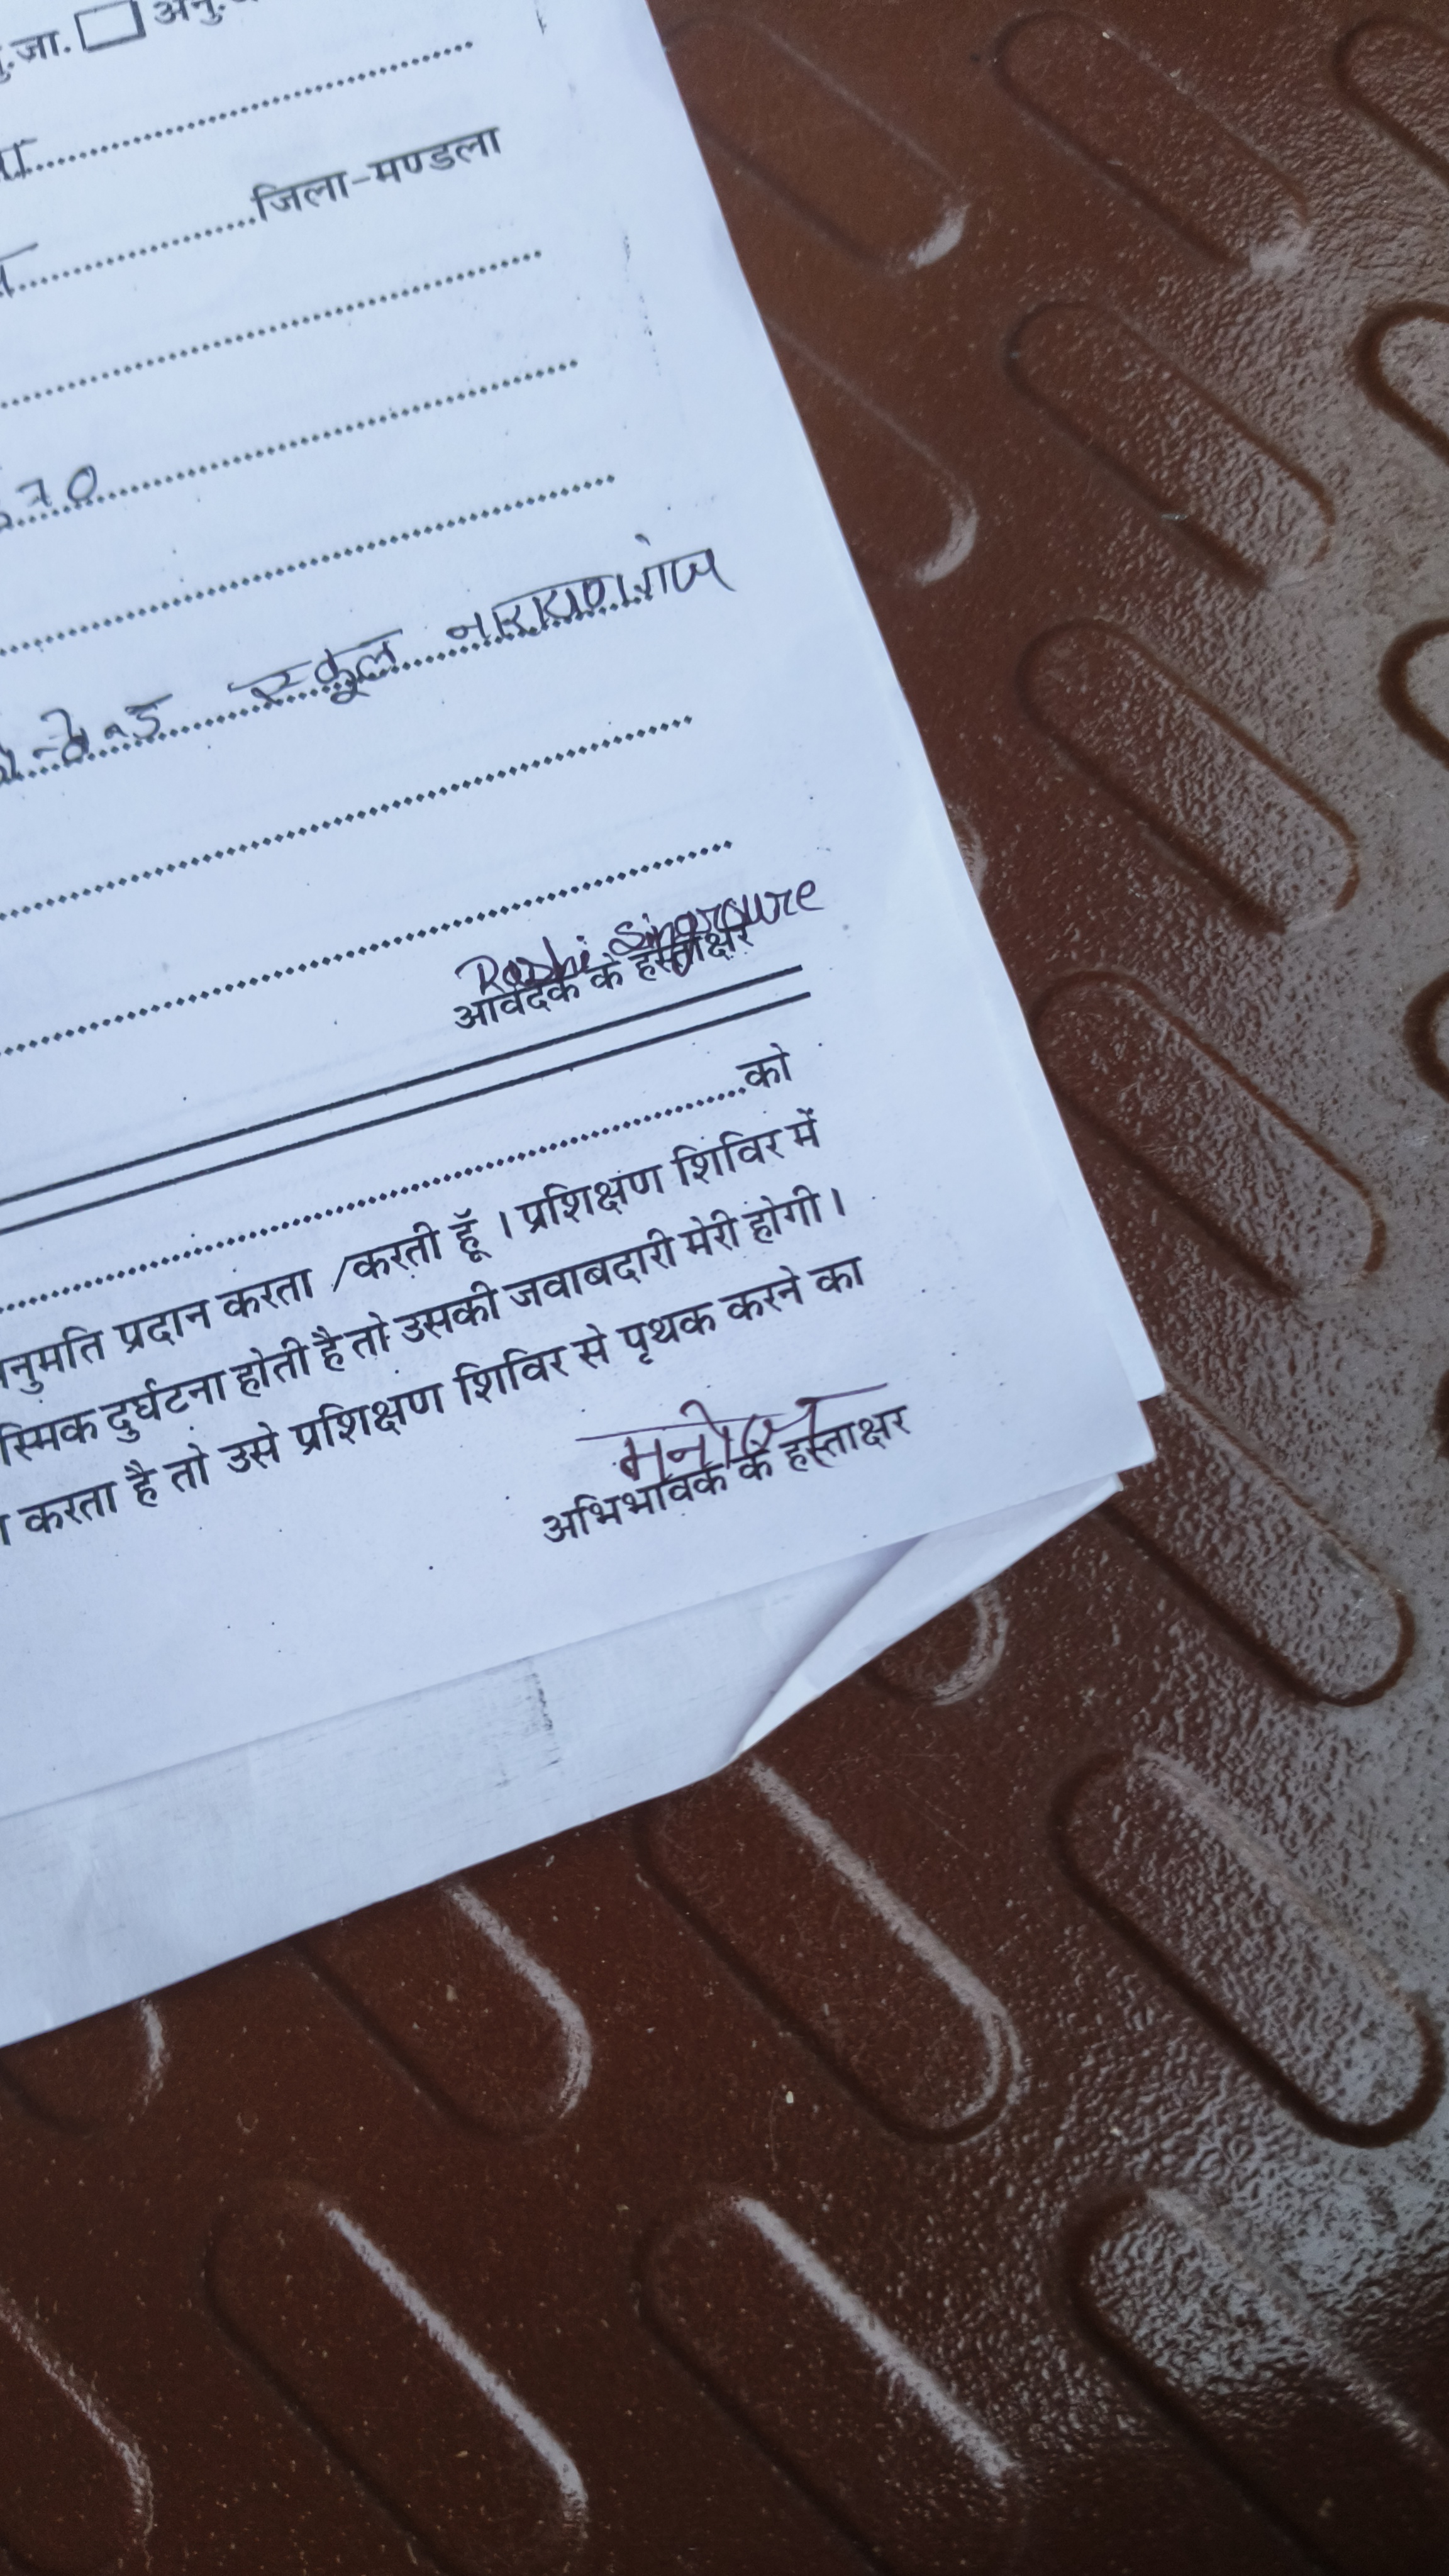 जा. अनु.
जिला-मण्डला
70
स्कूल नारायणगंज
Rashi Singroure
आवेदक के हस्ताक्षर
को
अनुमति प्रदान करता /करती हूँ । प्रशिक्षण शिविर में
स्मिक दुर्घटना होती है तो उसकी जवाबदारी मेरी होगी ।
करता है तो उसे प्रशिक्षण शिविर से पृथक करने का
मनोज
अभिभावक के हस्ताक्षर